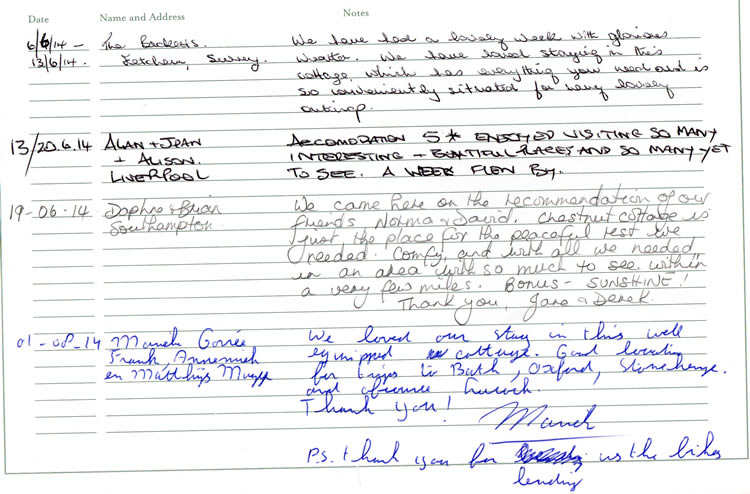 Date Name and Address Notes
6/6/14 – The Brokers. We have had a lovely week with glorious
13/6/14. Fetcham, Surrey. Weather. We have loved staying in this
cottage, which has everything you need and is
so conveniently situated for many lovely
outings.
13/20.6.14 ALAN + JEAN ACCOMODATION 5* ENJOYED VISITING SO MANY
+ ALISON. INTERESTING + BEAUTIFUL PLACES AND SO MANY YET
LIVERPOOL TO SEE. A WEEK FLEW BY.
19-06-14 Daphne & Brian We came here on the recommendation of our
Southampton friends Norma & David. Chestnut Cottage is
just the place for the peaceful rest we
needed. Comfy, and with all we needed,
in an area with so much to see within
a very few miles. Bonus - SUNSHINE!
Thank you, Jane & Derek.
01-08-14 We loved our stay in this well
Frank, Annemiek equipped cottage. Good location
en Matthijs for trips to Bath, Oxford, Stonehenge.
and of course
Thank you!
P.s. thank you for us the bikes
lending